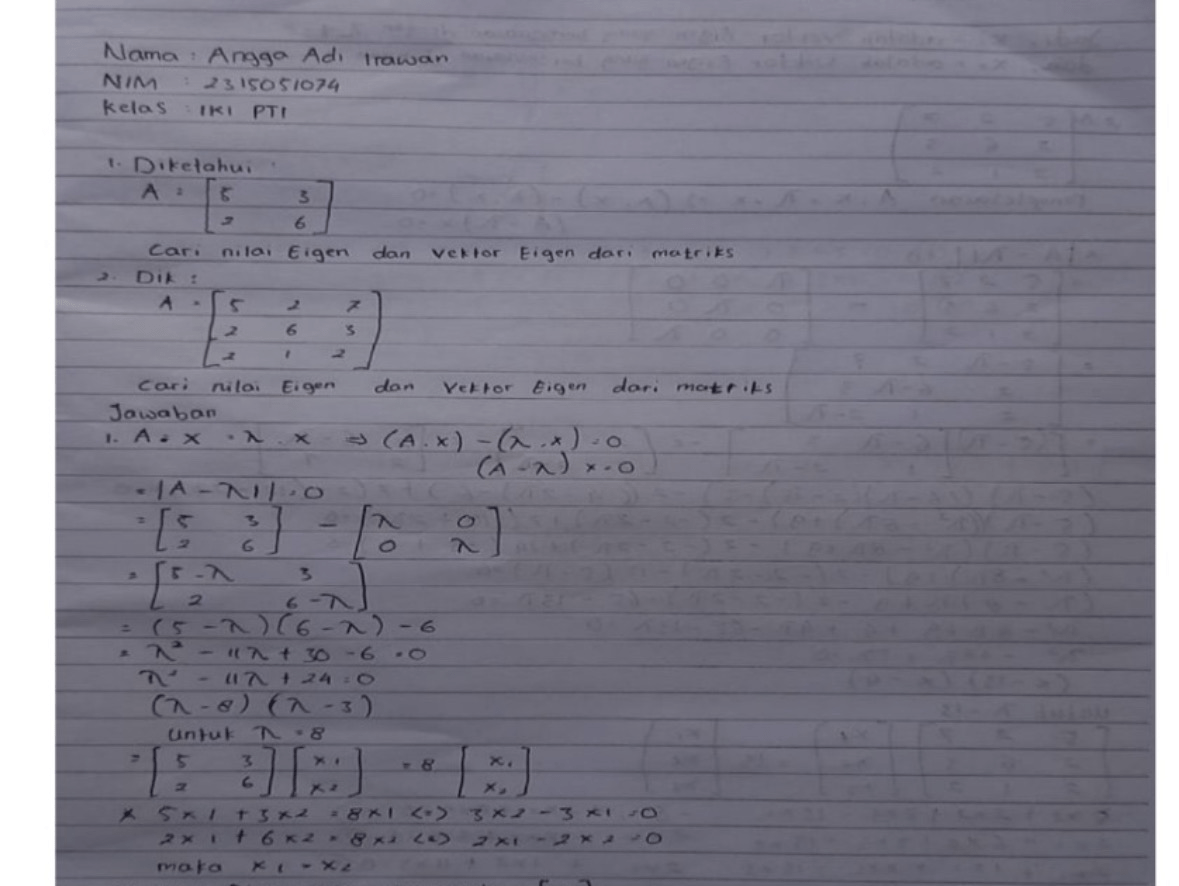 Nama : Angga Adi Irawan
NIM : 2315051074
Kelas : IKI PTI
1. Diketahui :
A = [5 3
2 6]
Cari nilai Eigen dan Vektor Eigen dari matriks
2. Dik :
A = [5 2 7
2 6 3
2 1 2]
Cari nilai Eigen dan Vektor Eigen dari matriks
Jawaban
1. A . x = λ . x ⇒ (A.x) - (λ.x) = 0
(A - λ) x = 0
= |A - λI| = 0
= [5 3 2 6] - [λ 0 0 λ]
= [5-λ 3
2 6-λ]
= (5 - λ)(6 - λ) - 6
= λ² - 11λ + 30 - 6 = 0
λ² - 11λ + 24 = 0
(λ - 8) (λ - 3)
Untuk λ = 8
= [5 3 2 6] [x1 x2] = 8 [x1 x2]
* 5x1 + 3x2 = 8x1 <=> 3x2 - 3x1 = 0
2x1 + 6x2 = 8x2 <=> 2x1 - 2x2 = 0
maka x1 = x2